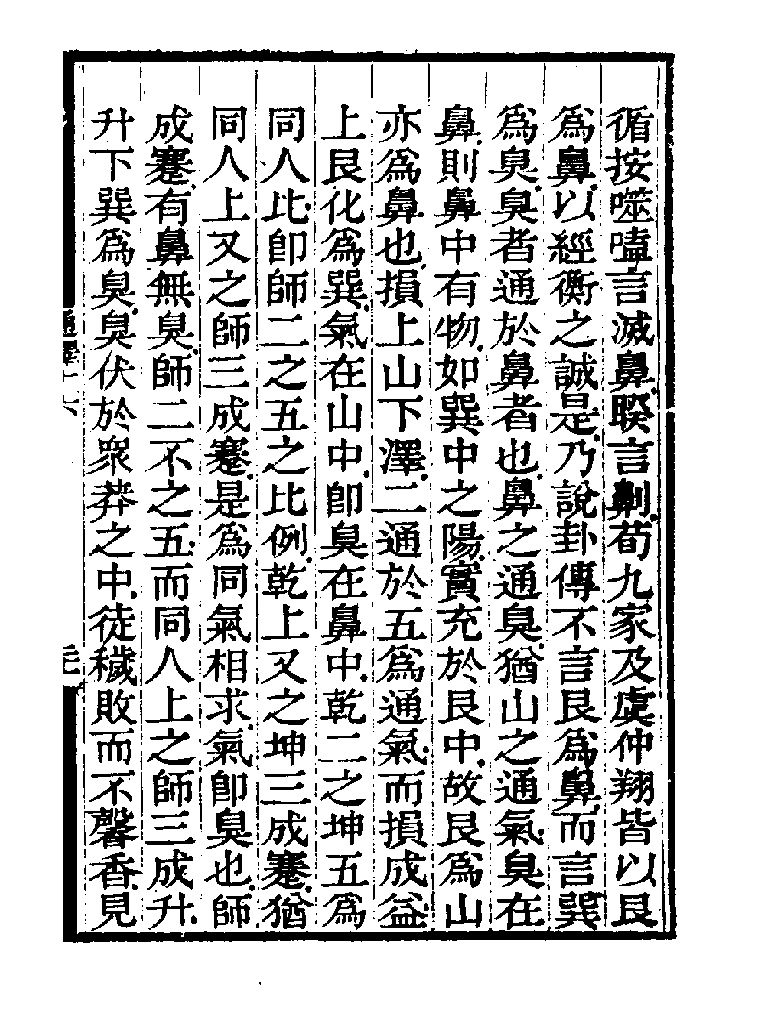 循按噬嗑言滅鼻睽言劓荀九家及虞仲翔皆以艮
為鼻以經衡之誠是乃說卦傳不言艮為鼻而言巽
為臭臭者通於鼻者也鼻之通臭猶山之通氣臭在
鼻則鼻中有物如巽中之陽實充於艮中故艮為山
亦為鼻也損上山下澤二通於五為通氣而損成益
上艮化為巽氣在山中即臭在鼻中乾二之坤五為
同人比即師二之五之比例乾上又之坤三成蹇猶
同人上又之師三成蹇是為同氣相求氣即臭也師
成蹇有鼻無臭師二不之五而同人上之師三成升
升下巽為臭臭伏於眾莽之中徒穢敗而不馨香見